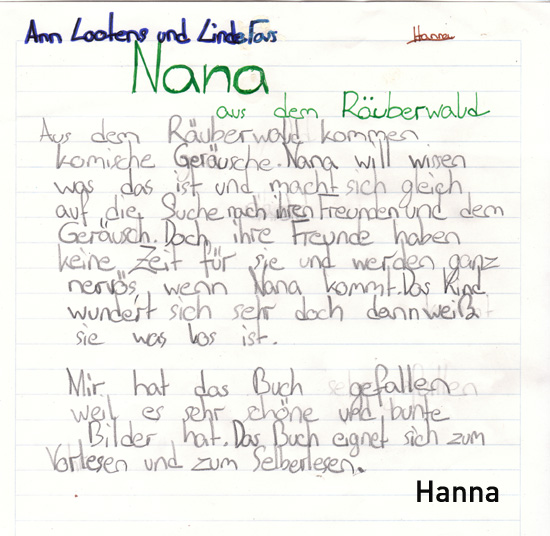 Ann Lootens und Linde Faas
Hanna
Nana
aus dem Räuberwald
Aus dem Räuberwald kommen
komische Geräusche. Nana will wisen
was das ist und macht sich gleich
auf die Suche nach ihren Freunden und dem
Geräusch. Doch ihre Freunde haben
keine Zeit für sie und werden ganz
nervös wenn Nana kommt. Das Kind
wundert sich sehr doch dann weiß
sie was los ist.
Mir hat das Buch gefallen
weil es sehr schöne und bunte
Bilder hat. Das Buch eignet sich zum
Vorlesen und zum Selberlesen.
Hanna